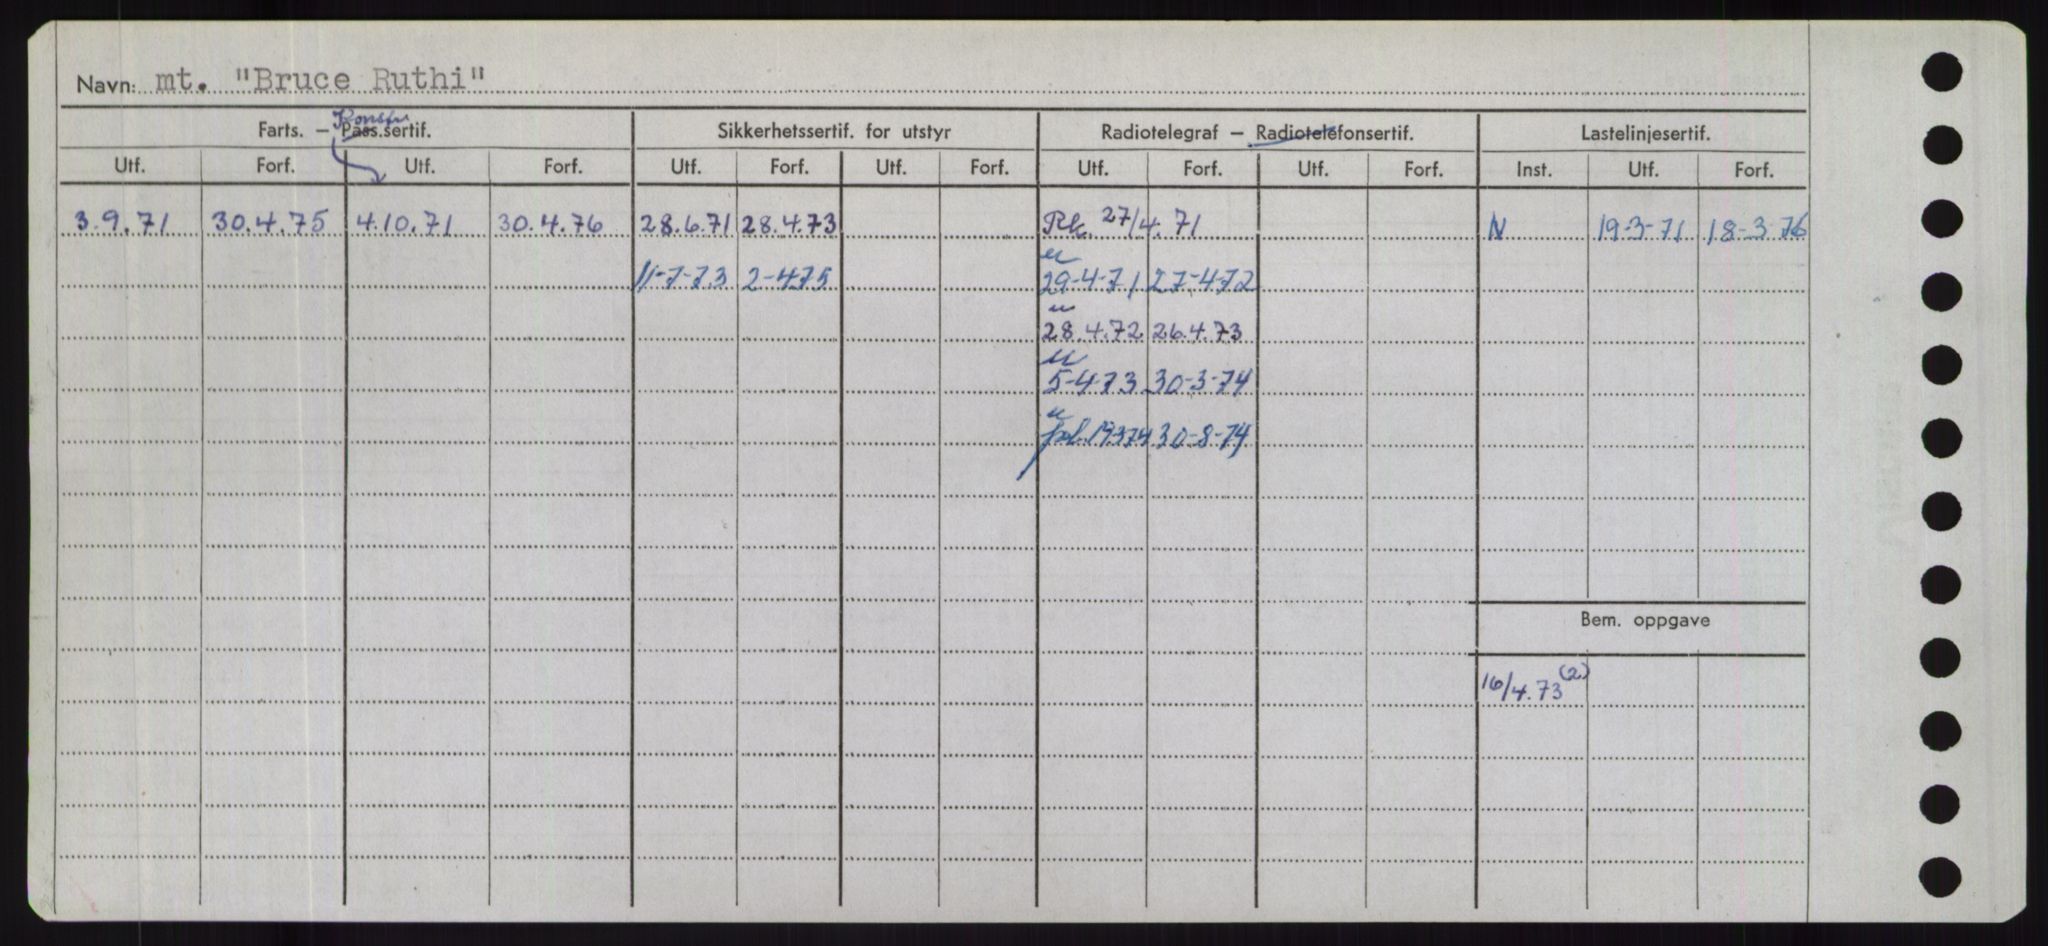 Navn: mt. "Bruce Ruthi"
Konstr.
Farts. — Pass.sertif. Sikkerhetssertif. for utstyr Radiotelegraf — Radiotelefonsertif. Lastelinjesertif.
Utf. Forf. Utf. Forf. Utf. Forf. Utf. Forf. Utf. Forf. Utf. Forf. Inst. Utf. Forf.
3.9.71 30.4.75 4.10.71 30.4.76 28.6.71 28.4.73 Rk. 27/4.71 N 19-3-71 18-3-76
"
11-7-73 2-4-75 29-4-71 27-4-72
"
28.4.72 26.4.73
"
5-4-73 30-3-74
"
19.3.74 30-8-74
Bem. oppgave
16/4.73 (2)